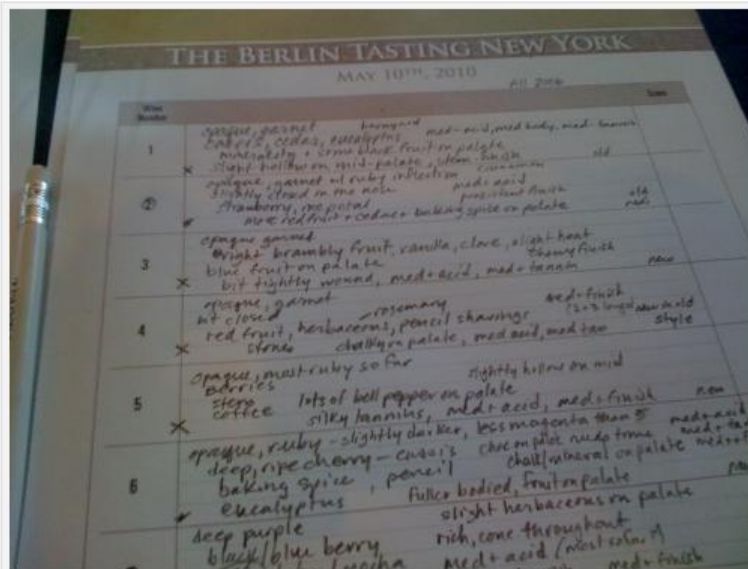 THE BERLIN TASTING NEW YORK
MAY 10TH, 2010
All 2006
Wine Number
Score
1
opaque, garnet barnyard
cassis, cedar, eucalyptus med+ acid, med body, med- tannin
minerality + some black fruit on palate
slight hollow on mid-palate, finish old
2
opaque, garnet w/ ruby inflection cinnamon
slightly closed on the nose med+ acid
strawberry, rose petal persistent finish old
more red fruit + cedar + baking spice on palate
3
opaque garnet
bright brambly fruit, vanilla, clove, slight heat
blue fruit on palate finish
bit tightly wound, med+ acid, med+ tannin new
4
opaque, garnet
bit closed - rosemary med+ finish
red fruit, herbaceous, pencil shavings new in old
stones chalky on palate, med acid, med tan style
5
opaque, most ruby so far
berries slightly hollow on mid
stem lots of bell pepper on palate
coffee silky tannins, med+ acid, med+ finish new
6
opaque, ruby - slightly darker, less magenta than 5
deep, ripe cherry - cassis needs time med+ acid
baking spice, pencil chalk/mineral on palate
eucalyptus fuller bodied, fruit on palate
slight herbaceous on palate
deep purple
black/blue berry rich, throughout
mocha med+ acid (most so far)
med+ finish